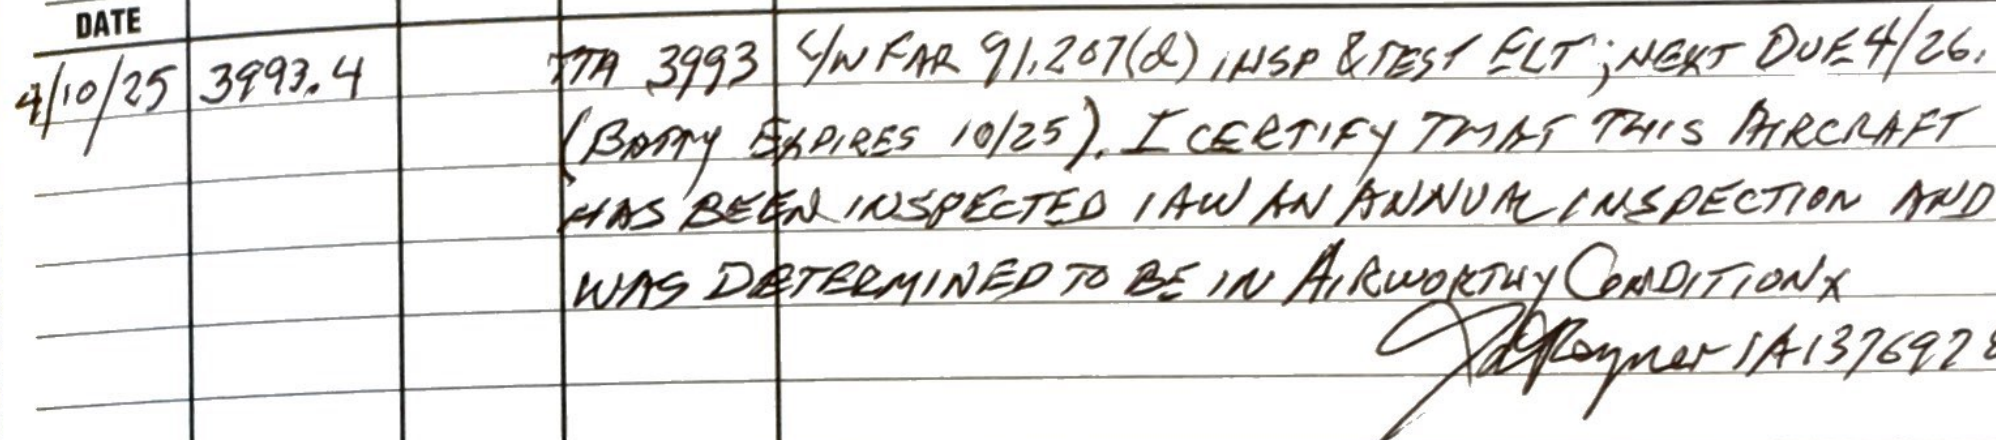 DATE
4/10/25 3993.4 TTA 3993 C/W FAR 91.207(d) INSP & TEST ELT; NEXT DUE 4/26.
(BATTY EXPIRES 10/25). I CERTIFY THAT THIS AIRCRAFT
HAS BEEN INSPECTED IAW AN ANNUAL INSPECTION AND
WAS DETERMINED TO BE IN AIRWORTHY CONDITION
Rayner IA 1376978